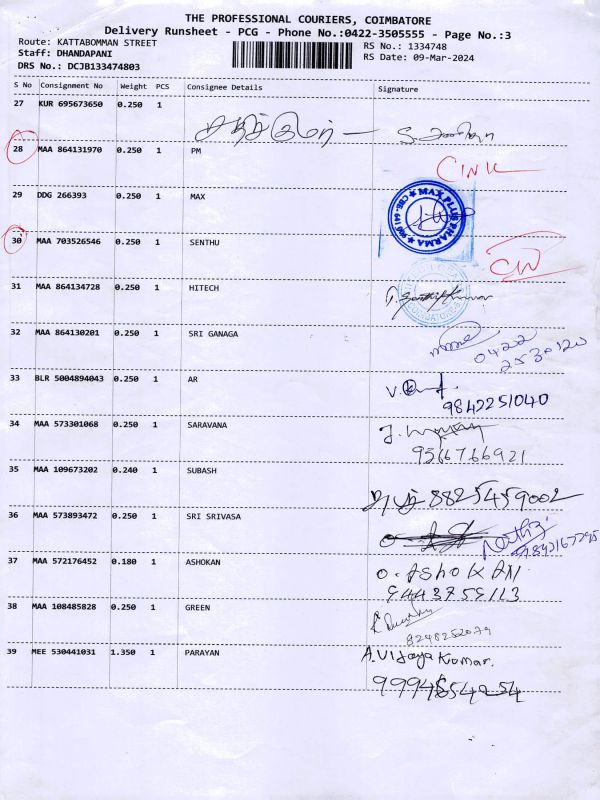 THE PROFESSIONAL COURIERS, COIMBATORE
Delivery Runsheet - PCG - Phone No.:0422-3505555 - Page No.:3
Route: KATTABOMMAN STREET RS No.: 1334748
Staff: DHANDAPANI RS Date: 09-Mar-2024
DRS No.: DCJB133474803
S No Consignment No Weight PCS Consignee Details Signature
27 KUR 695673650 0.250 1
28 MAA 864131970 0.250 1 PM
29 DDG 266393 0.250 1 MAX
MAX PLUS PHARMA
30 MAA 703526546 0.250 1 SENTHU
31 MAA 864134728 0.250 1 HITECH
32 MAA 864130201 0.250 1 SRI GANAGA
0422
2530120
33 BLR 5004894043 0.250 1 AR
9842251040
34 MAA 573301068 0.250 1 SARAVANA
9566766921
35 MAA 109673202 0.240 1 SUBASH
8825459002
36 MAA 573893472 0.250 1 SRI SRIVASA
37 MAA 572176452 0.180 1 ASHOKAN O. ASHOKAN
9443759113
38 MAA 108485828 0.250 1 GREEN
8248252079
39 MEE 530441031 1.350 1 PARAYAN A.Vijaya Kumar.
9994854254